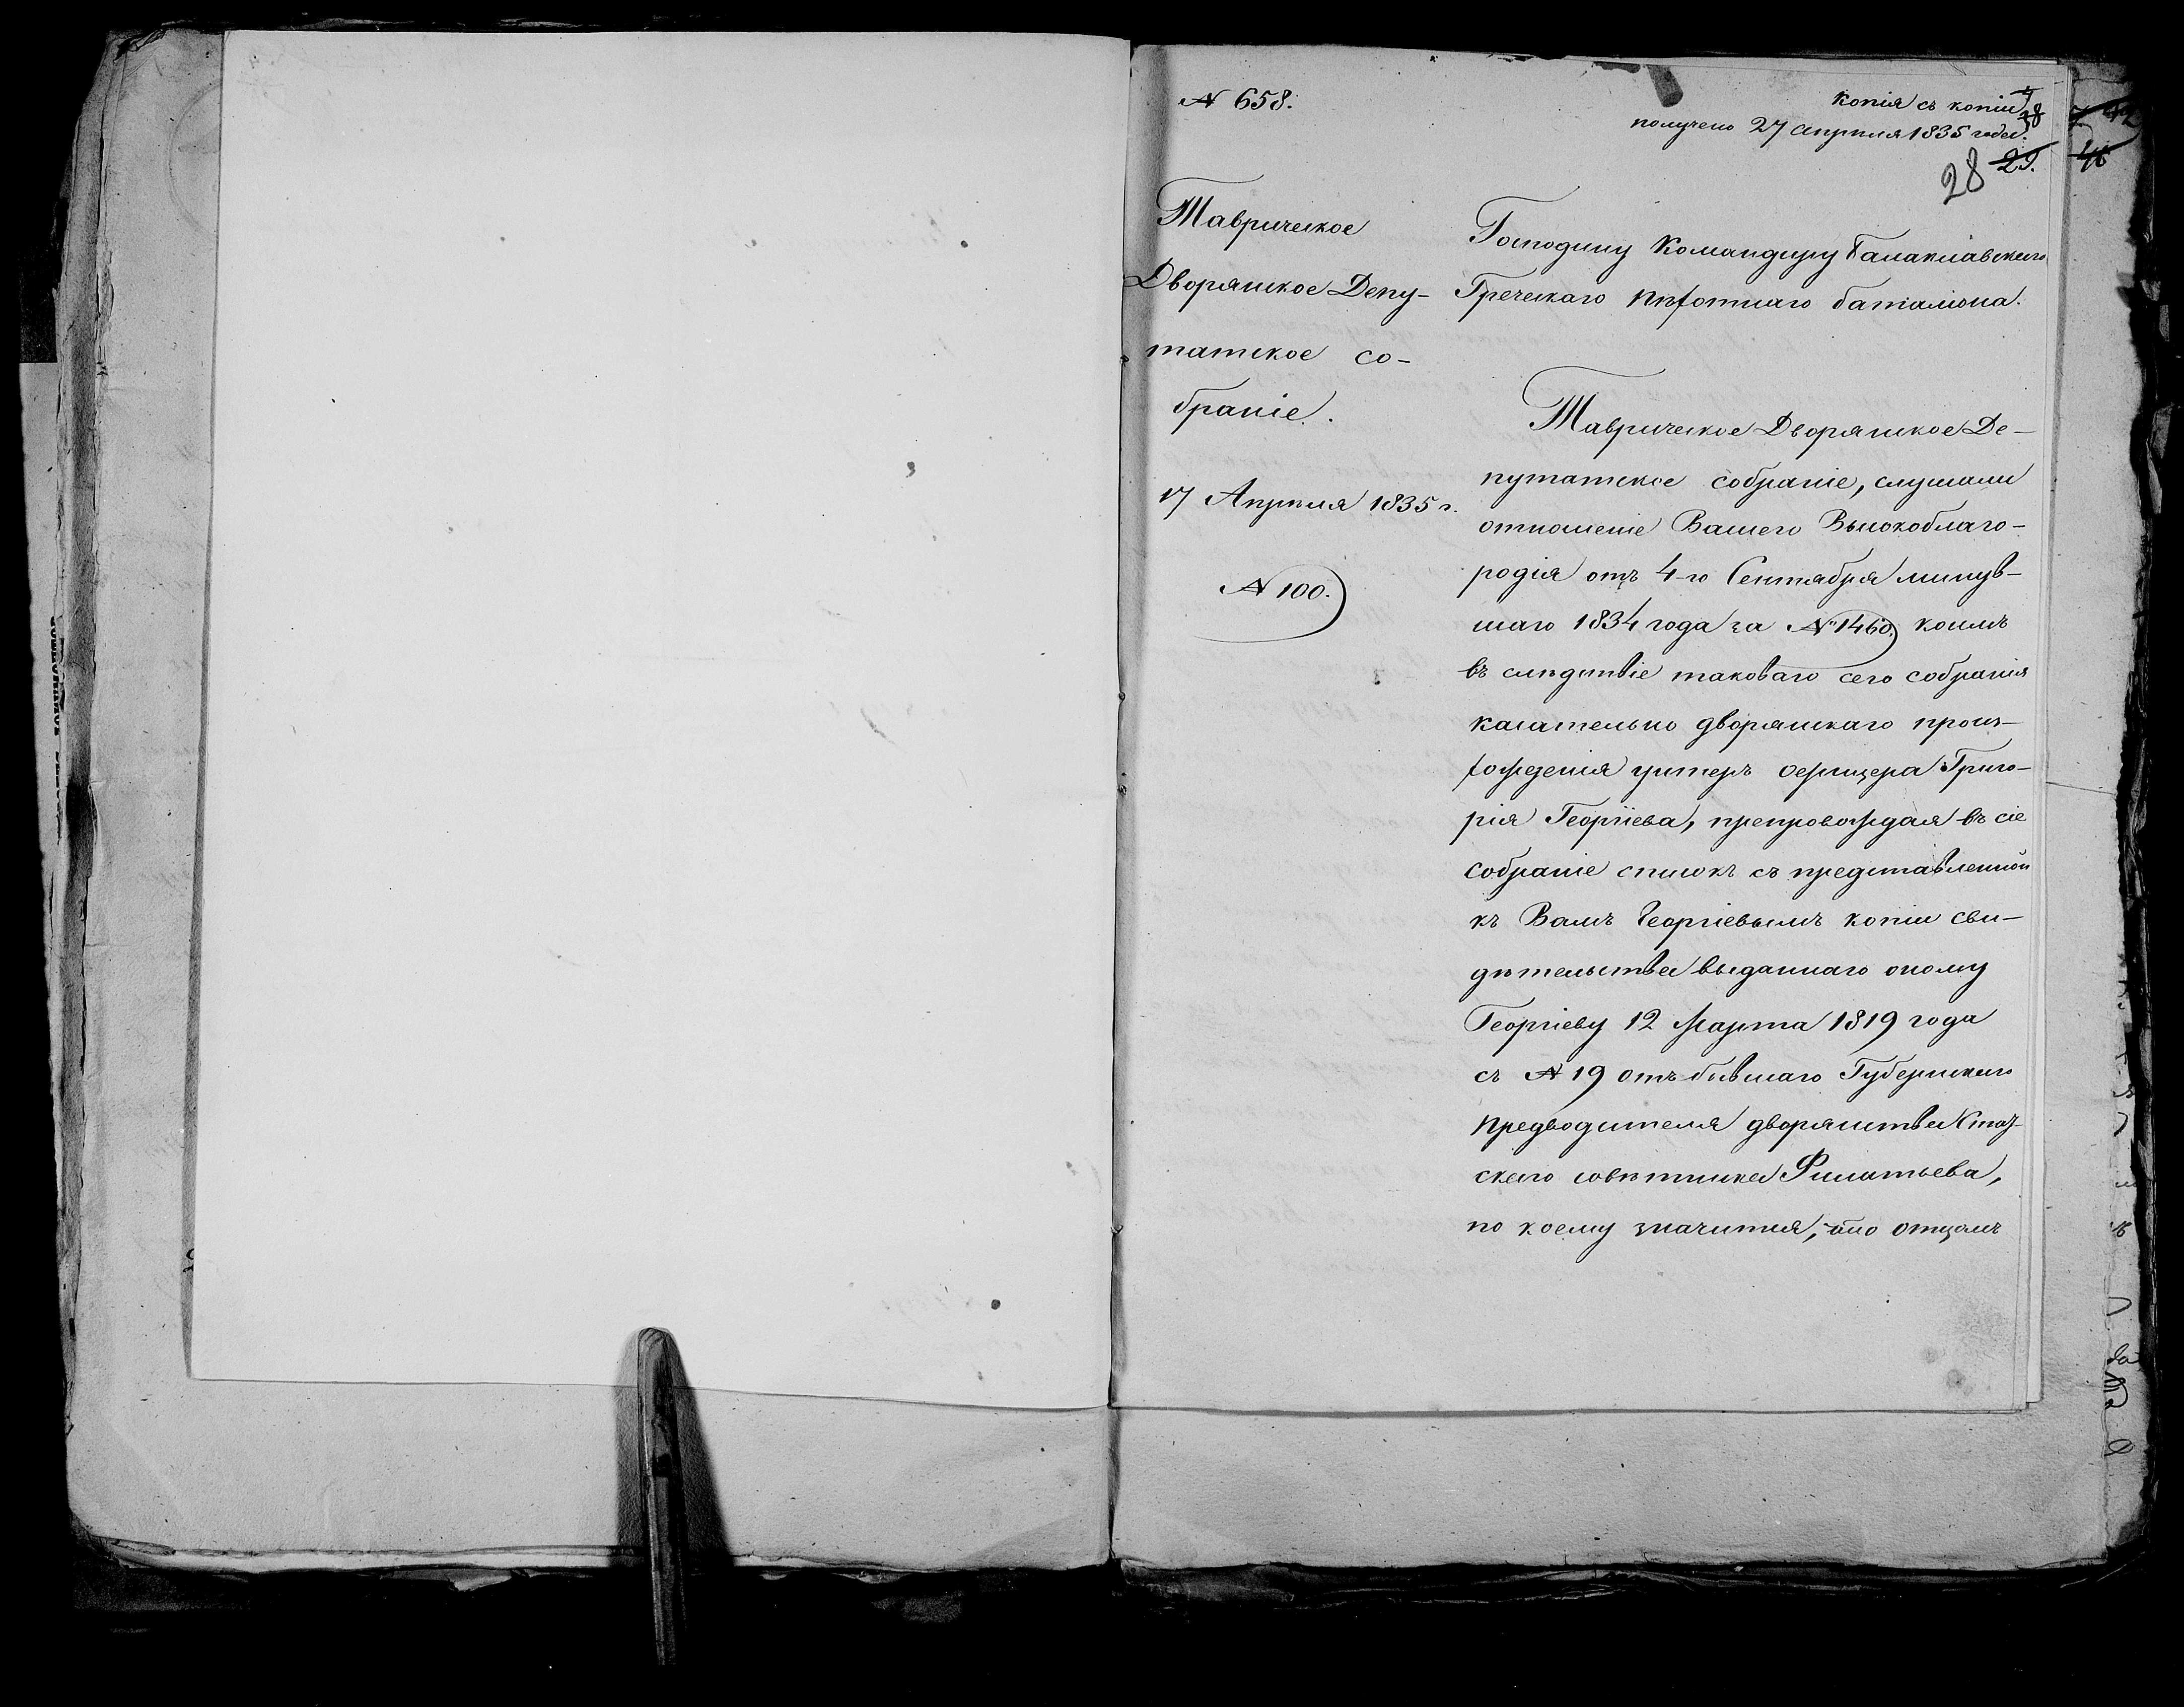 № 658.
копія съ копіи
получено 27 апрѣля 1835 года.
28 29.
Таврическое
Дворянское Депу-
татское со-
браніе.
17 Апрѣля 1835 г.
№ 100.
Господину Командиру Балаклавскаго
Греческаго пѣхотнаго баталіона.
Таврическое Дворянское Де-
путатское собраніе, слушали
отношеніе Вашего Высокоблаго-
родія отъ 4-го Сентября минув-
шаго 1834 года за № 1460, коимъ
въ слѣдствіе таковаго сего собранія
касательно дворянскаго проис-
хожденія унтеръ офицера Григо-
рія Георгіева, препровождая въ сіе
собраніе списокъ съ представленной
къ Вамъ Георгіевымъ копіи сви-
дѣтельства выданнаго оному
Георгіеву 12 Марта 1819 года
съ № 19 отъ бывшаго Губернскаго
предводителя дворянства Стат-
скаго совѣтника Филатьева,
по коему значится, что отцомъ